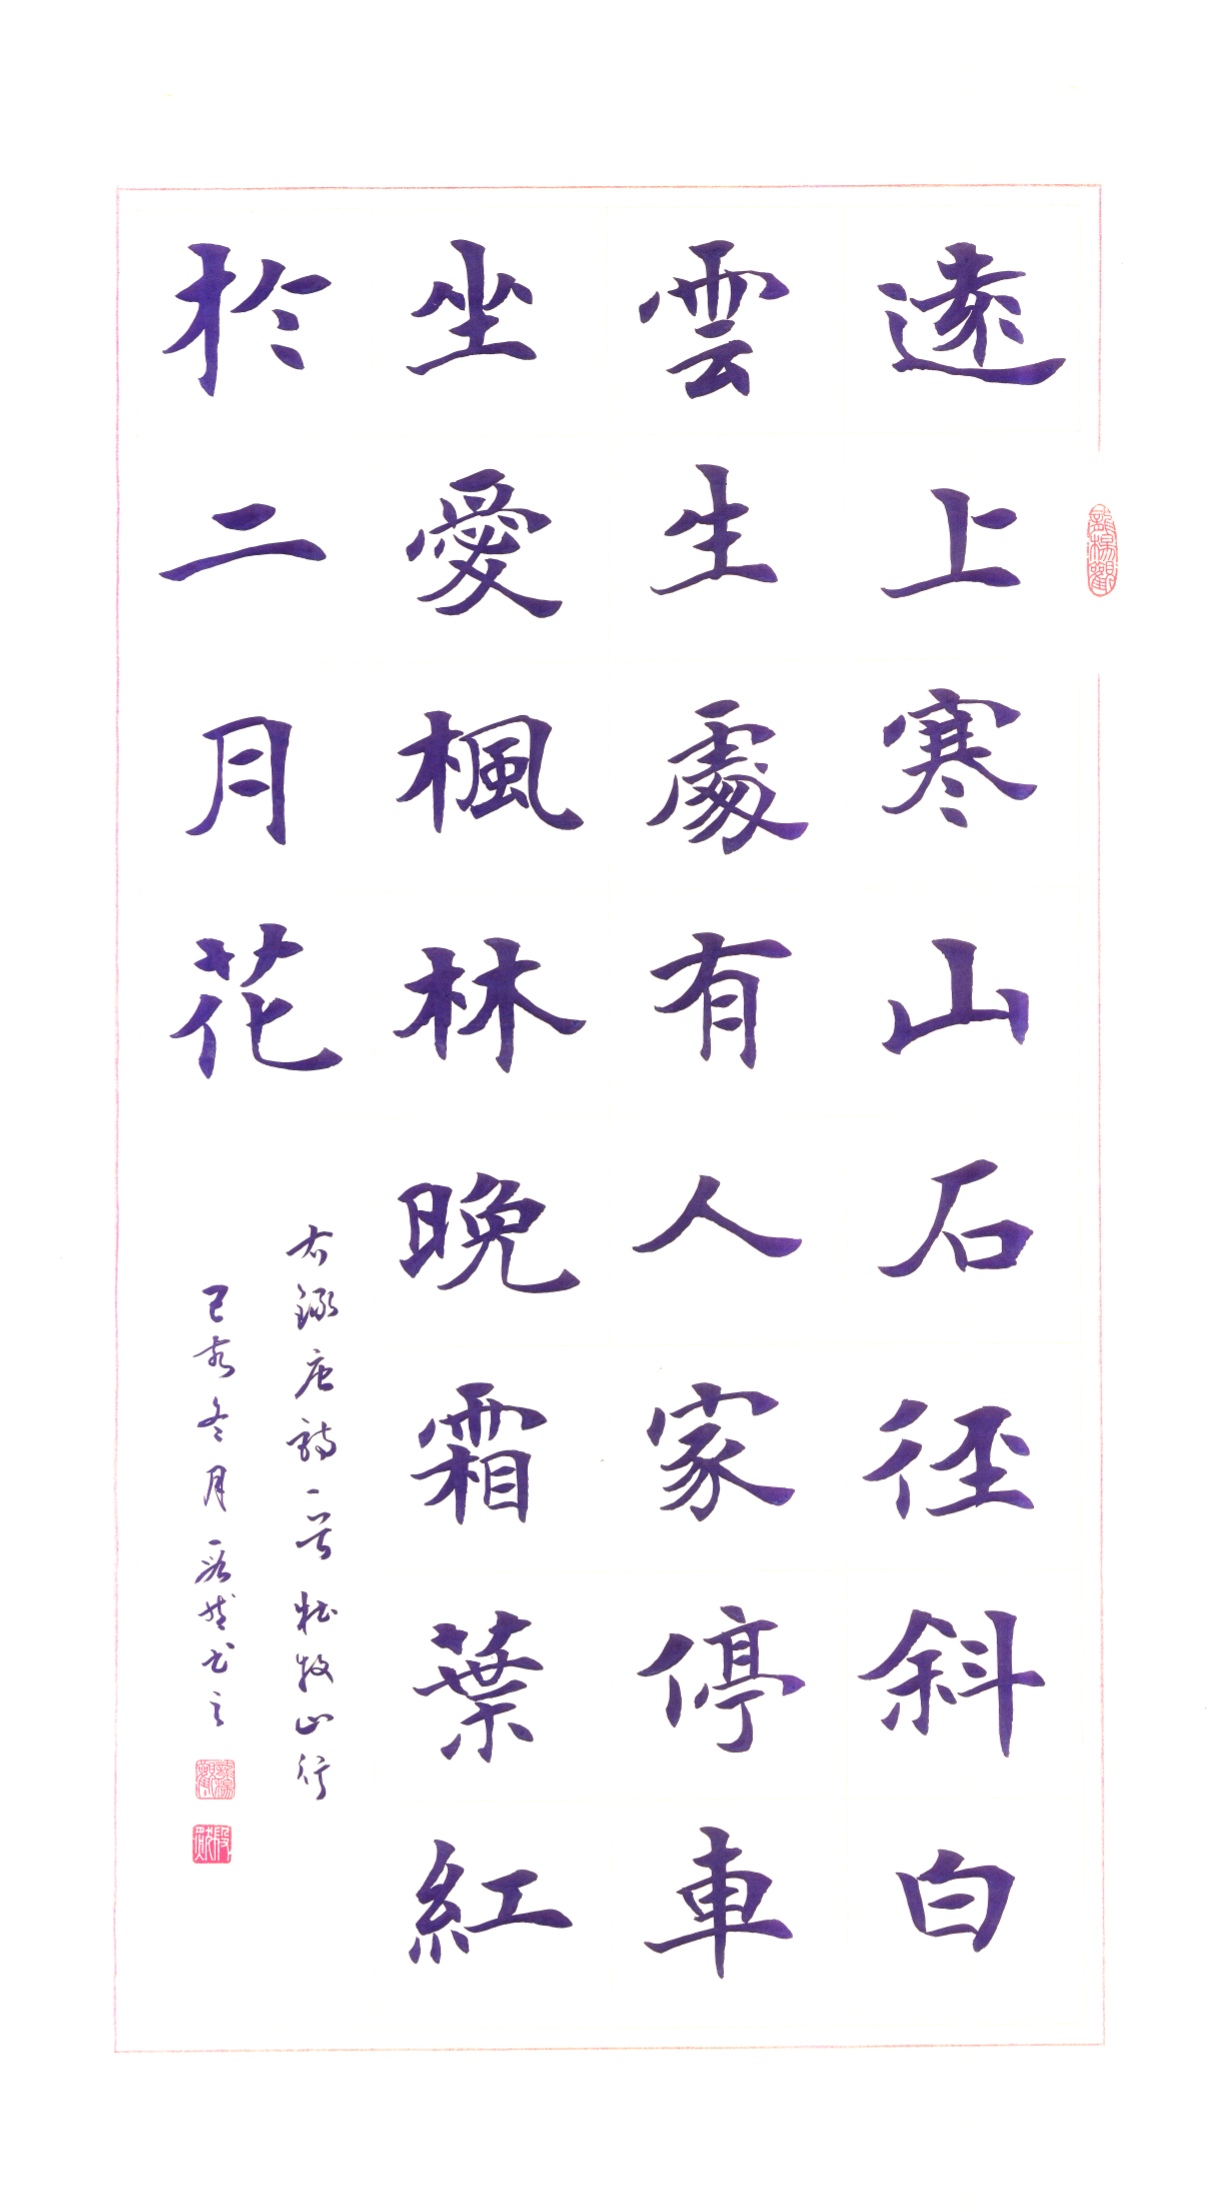 遠上寒山石徑斜白
雲生處有人家停車
坐愛楓林晚霜葉紅
於二月花
右錄唐詩一首杜牧山行
己亥冬月 然書之